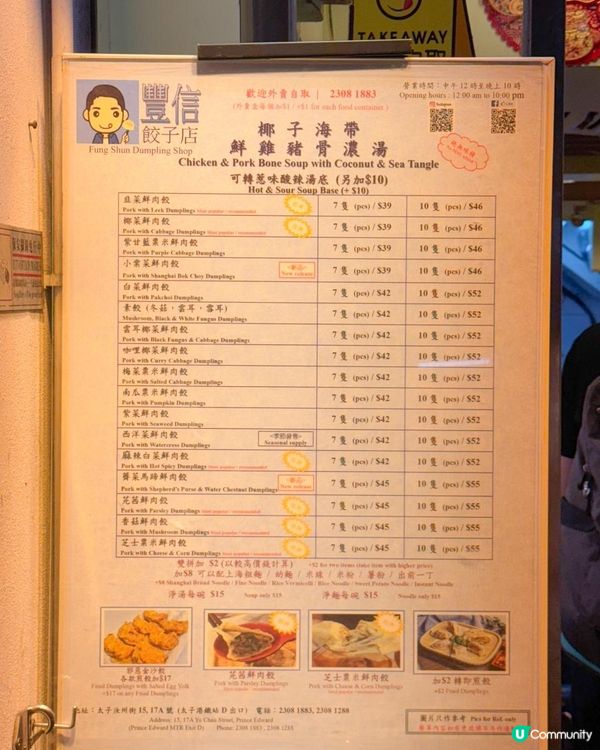 TAKEAWAY
豐信
餃子店
Fung Shun Dumpling Shop
歡迎外賣自取 | 2308 1883
(外賣盒每個加$1 / +$1 for each food container.)
營業時間:中午 12 時至晚上 10 時
Opening hours : 12:00 am to 10:00 pm
椰子海帶
鮮雞豬骨濃湯
Chicken & Pork Bone Soup with Coconut & Sea Tangle
可轉葱味酸辣湯底 (另加$10)
Hot & Sour Soup Base (+ $10)
韭菜鮮肉餃
Pork with Leek Dumplings Most popular / recommended 7 隻 (pcs) / $39 10 隻 (pcs) / $46
椰菜鮮肉餃
Pork with Cabbage Dumplings Most popular / recommended 7 隻 (pcs) / $39 10 隻 (pcs) / $46
紫甘藍粟米鮮肉餃
Pork with Purple Cabbage Dumplings 7 隻 (pcs) / $39 10 隻 (pcs) / $46
小棠菜鮮肉餃
Pork with Shanghai Bok Choy Dumplings New release 7 隻 (pcs) / $39 10 隻 (pcs) / $46
白菜鮮肉餃
Pork with Pakchoi Dumplings 7 隻 (pcs) / $42 10 隻 (pcs) / $52
素餃 (冬菇,雲耳,雪耳)
Mushroom, Black & White Fungus Dumplings 7 隻 (pcs) / $42 10 隻 (pcs) / $52
雲耳椰菜鮮肉餃
Pork with Black Fungus & Cabbage Dumplings 7 隻 (pcs) / $42 10 隻 (pcs) / $52
咖哩椰菜鮮肉餃
Pork with Curry Cabbage Dumplings 7 隻 (pcs) / $42 10 隻 (pcs) / $52
梅菜粟米鮮肉餃
Pork with Salted Cabbage Dumplings 7 隻 (pcs) / $42 10 隻 (pcs) / $52
南瓜粟米鮮肉餃
Pork with Pumpkin Dumplings 7 隻 (pcs) / $42 10 隻 (pcs) / $52
紫菜鮮肉餃
Pork with Seaweed Dumplings 7 隻 (pcs) / $42 10 隻 (pcs) / $52
西洋菜鮮肉餃 <季節發售>
Pork with Watercress Dumplings Seasonal supply 7 隻 (pcs) / $42 10 隻 (pcs) / $52
麻辣白菜鮮肉餃
Pork with Hot Spicy Dumplings Most popular / recommended 7 隻 (pcs) / $42 10 隻 (pcs) / $52
薺菜馬蹄鮮肉餃
Pork with Shepherd's Purse & Water Chestnut Dumplings New release 7 隻 (pcs) / $45 10 隻 (pcs) / $55
芫茜鮮肉餃
Pork with Parsley Dumplings Most popular / recommended 7 隻 (pcs) / $45 10 隻 (pcs) / $55
香菇鮮肉餃
Pork with Mushroom Dumplings Most popular / recommended 7 隻 (pcs) / $45 10 隻 (pcs) / $55
芝士粟米鮮肉餃
Pork with Cheese & Corn Dumplings Most popular / recommended 7 隻 (pcs) / $45 10 隻 (pcs) / $55
雙拼加 $2 (以較高價錢計算) +$2 for two items (take item with higher price)
加$8 可以配上海粗麵 / 幼麵 / 米線 / 米粉 / 薯粉 / 出前一丁
+$8 Shanghai Bread Noodle / Fine Noodle / Rice Vermicelli / Rice Noodle / Sweet Potato Noodle / Instant Noodle
淨湯每碗 $15 Soup only $15 淨麵每碗 $15 Noodle only $15
邪惡金沙餃
各款煎餃加$17
Fried Dumplings with Salted Egg Yolk
+$17 on any Fried Dumplings
芫茜鮮肉餃
Pork with Parsley Dumplings
芝士粟米鮮肉餃
Pork with Cheese & Corn Dumplings
加$2 轉即煎餃
+$2 Fried Dumplings
地址:太子汝州街 15, 17A 號 (太子港鐵站 D 出口) 電話:2308 1883, 2308 1288
Address: 15, 17A Yu Chau Street, Prince Edward
(Prince Edward MTR Exit D) Phone: 2308 1883, 2308 1288
圖片只作參考 Pics for Ref. only
U Community